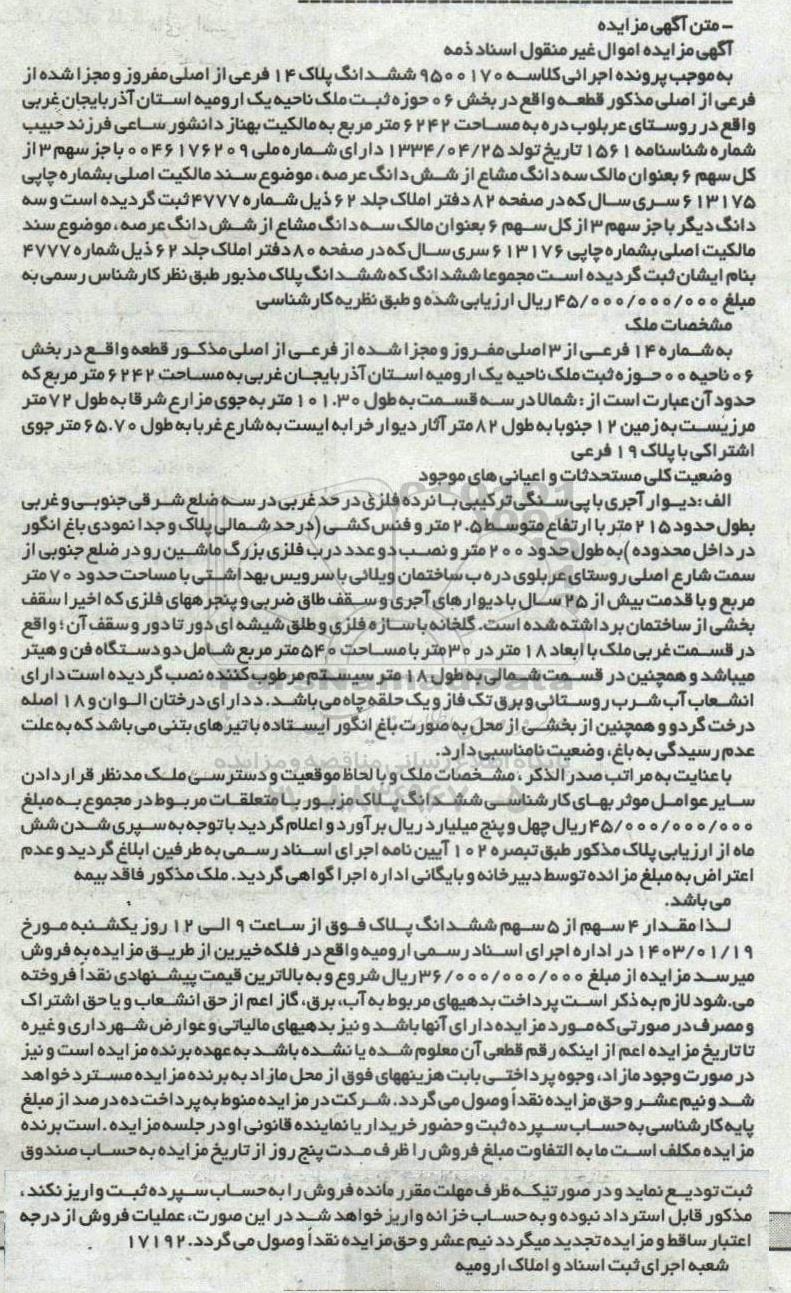 - متن آگهی مزایده
آگهی مزایده اموال غیر منقول اسناد ذمه
به موجب پرونده اجرائی کلاسه ۹۵۰۰۱۷۰ ششدانگ پلاک ۱۴ فرعی از اصلی مفروز و مجزا شده از
فرعی از اصلی مذکور قطعه واقع در بخش ۰۶ حوزه ثبت ملک ناحیه یک ارومیه استان آذربایجان غربی
واقع در روستای عربلوب دره به مساحت ۶۲۴۲ متر مربع به مالکیت بهناز دانشور ساعی فرزند حبیب
شماره شناسنامه ۱۵۶۱ تاریخ تولد ۱۳۳۴/۰۴/۲۵ دارای شماره ملی ۰۰۴۶۱۷۶۲۰۹ با جز سهم ۳ از
کل سهم ۶ بعنوان مالک سه دانگ مشاع از شش دانگ عرصه، موضوع سند مالکیت اصلی بشماره چاپی
۶۱۳۱۷۵ سری سال که در صفحه ۸۲ دفتر املاک جلد ۶۲ ذیل شماره ۴۷۷۷ ثبت گردیده است و سه
دانگ دیگر با جز سهم ۳ از کل سهم ۶ بعنوان مالک سه دانگ مشاع از شش دانگ عرصه، موضوع سند
مالکیت اصلی بشماره چاپی ۶۱۳۱۷۶ سری سال که در صفحه ۸۰ دفتر املاک جلد ۶۲ ذیل شماره ۴۷۷۷
بنام ایشان ثبت گردیده است مجموعا ششدانگ که ششدانگ پلاک مذبور طبق نظر کارشناس رسمی به
مبلغ ۴۵/۰۰۰/۰۰۰/۰۰۰ ریال ارزیابی شده و طبق نظریه کارشناسی
مشخصات ملک
به شماره ۱۴ فرعی از ۳ اصلی مفروز و مجزا شده از فرعی از اصلی مذکور قطعه واقع در بخش
۰۶ ناحیه ۰۰ حوزه ثبت ملک ناحیه یک ارومیه استان آذربایجان غربی به مساحت ۶۲۴۲ متر مربع که
حدود آن عبارت است از: شمالا در سه قسمت به طول ۱۰۱.۳۰ متر به جوی مزارع شرقا به طول ۷۲ متر
مرزیست به زمین ۱۲ جنوبا به طول ۸۲ متر آثار دیوار خرابه ایست به شارع غربا به طول ۶۵.۷۰ متر جوی
اشتراکی با پلاک ۱۹ فرعی
وضعیت کلی مستحدثات و اعیانی های موجود
الف: دیوار آجری با پی سنگی ترکیبی با نرده فلزی در حد غربی در سه ضلع شرقی جنوبی و غربی
بطول حدود ۲۱۵ متر با ارتفاع متوسط ۲.۵ متر و فنس کشی (در حد شمالی پلاک و جدا نمودی باغ انگور
در داخل محدوده) به طول حدود ۲۰۰ متر و نصب دو عدد درب فلزی بزرگ ماشین رو در ضلع جنوبی از
سمت شارع اصلی روستای عربلوی دره ب ساختمان ویلائی با سرویس بهداشتی با مساحت حدود ۷۰ متر
مربع و با قدمت بیش از ۲۵ سال با دیوارهای آجری و سقف طاق ضربی و پنجرههای فلزی که اخیرا سقف
بخشی از ساختمان برداشته شده است. گلخانه با سازه فلزی و طلق شیشه ای دور تا دور و سقف آن؛ واقع
در قسمت غربی ملک با ابعاد ۱۸ متر در ۳۰ متر با مساحت ۵۴۰ متر مربع شامل دو دستگاه فن و هیتر
میباشد و همچنین در قسمت شمالی به طول ۱۸ متر سیستم مرطوب کننده نصب گردیده است دارای
انشعاب آب شرب روستائی و برق تک فاز و یک حلقه چاه می باشد. د دارای درختان الوان و ۱۸ اصله
درخت گردو و همچنین از بخشی از محل به صورت باغ انگور ایستاده با تیرهای بتنی می باشد که به علت
عدم رسیدگی به باغ، وضعیت نامناسبی دارد.
با عنایت به مراتب صدرالذکر، مشخصات ملک و با لحاظ موقعیت و دسترسی ملک مدنظر قرار دادن
سایر عوامل موثر بهای کارشناسی ششدانگ پلاک مزبور با متعلقات مربوط در مجموع به مبلغ
۴۵/۰۰۰/۰۰۰/۰۰۰ ریال چهل و پنج میلیارد ریال برآورد و اعلام گردید با توجه به سپری شدن شش
ماه از ارزیابی پلاک مذکور طبق تبصره ۱۰۲ آیین نامه اجرای اسناد رسمی به طرفین ابلاغ گردید و عدم
اعتراض به مبلغ مزائده توسط دبیرخانه و بایگانی اداره اجرا گواهی گردید. ملک مذکور فاقد بیمه
می باشد.
لذا مقدار ۴ سهم از ۵ سهم ششدانگ پلاک فوق از ساعت ۹ الی ۱۲ روز یکشنبه مورخ
۱۴۰۳/۰۱/۱۹ در اداره اجرای اسناد رسمی ارومیه واقع در فلکه خیرین از طریق مزایده به فروش
میرسد مزایده از مبلغ ۳۶/۰۰۰/۰۰۰/۰۰۰ ریال شروع و به بالاترین قیمت پیشنهادی نقداً فروخته
می.شود لازم به ذکر است پرداخت بدهیهای مربوط به آب، برق، گاز اعم از حق انشعاب و یا حق اشتراک
و مصرف در صورتی که مورد مزایده دارای آنها باشد و نیز بدهیهای مالیاتی و عوارض شهرداری و غیره
تا تاریخ مزایده اعم از اینکه رقم قطعی آن معلوم شده یا نشده باشد به عهده برنده مزایده است و نیز
در صورت وجود مازاد، وجوه پرداختی بابت هزینههای فوق از محل مازاد به برنده مزایده مسترد خواهد
شد و نیم عشر و حق مزایده نقداً وصول می گردد. شرکت در مزایده منوط به پرداخت ده درصد از مبلغ
پایه کارشناسی به حساب سپرده ثبت و حضور خریدار یا نماینده قانونی او در جلسه مزایده. است برنده
مزایده مکلف است ما به التفاوت مبلغ فروش را ظرف مدت پنج روز از تاریخ مزایده به حساب صندوق
ثبت تودیع نماید و در صورتیکه ظرف مهلت مقرر مانده فروش را به حساب سپرده ثبت واریز نکند،
مذکور قابل استرداد نبوده و به حساب خزانه واریز خواهد شد در این صورت، عملیات فروش از درجه
اعتبار ساقط و مزایده تجدید میگردد نیم عشر و حق مزایده نقداً وصول می گردد. ۱۷۱۹۲
شعبه اجرای ثبت اسناد و املاک ارومیه